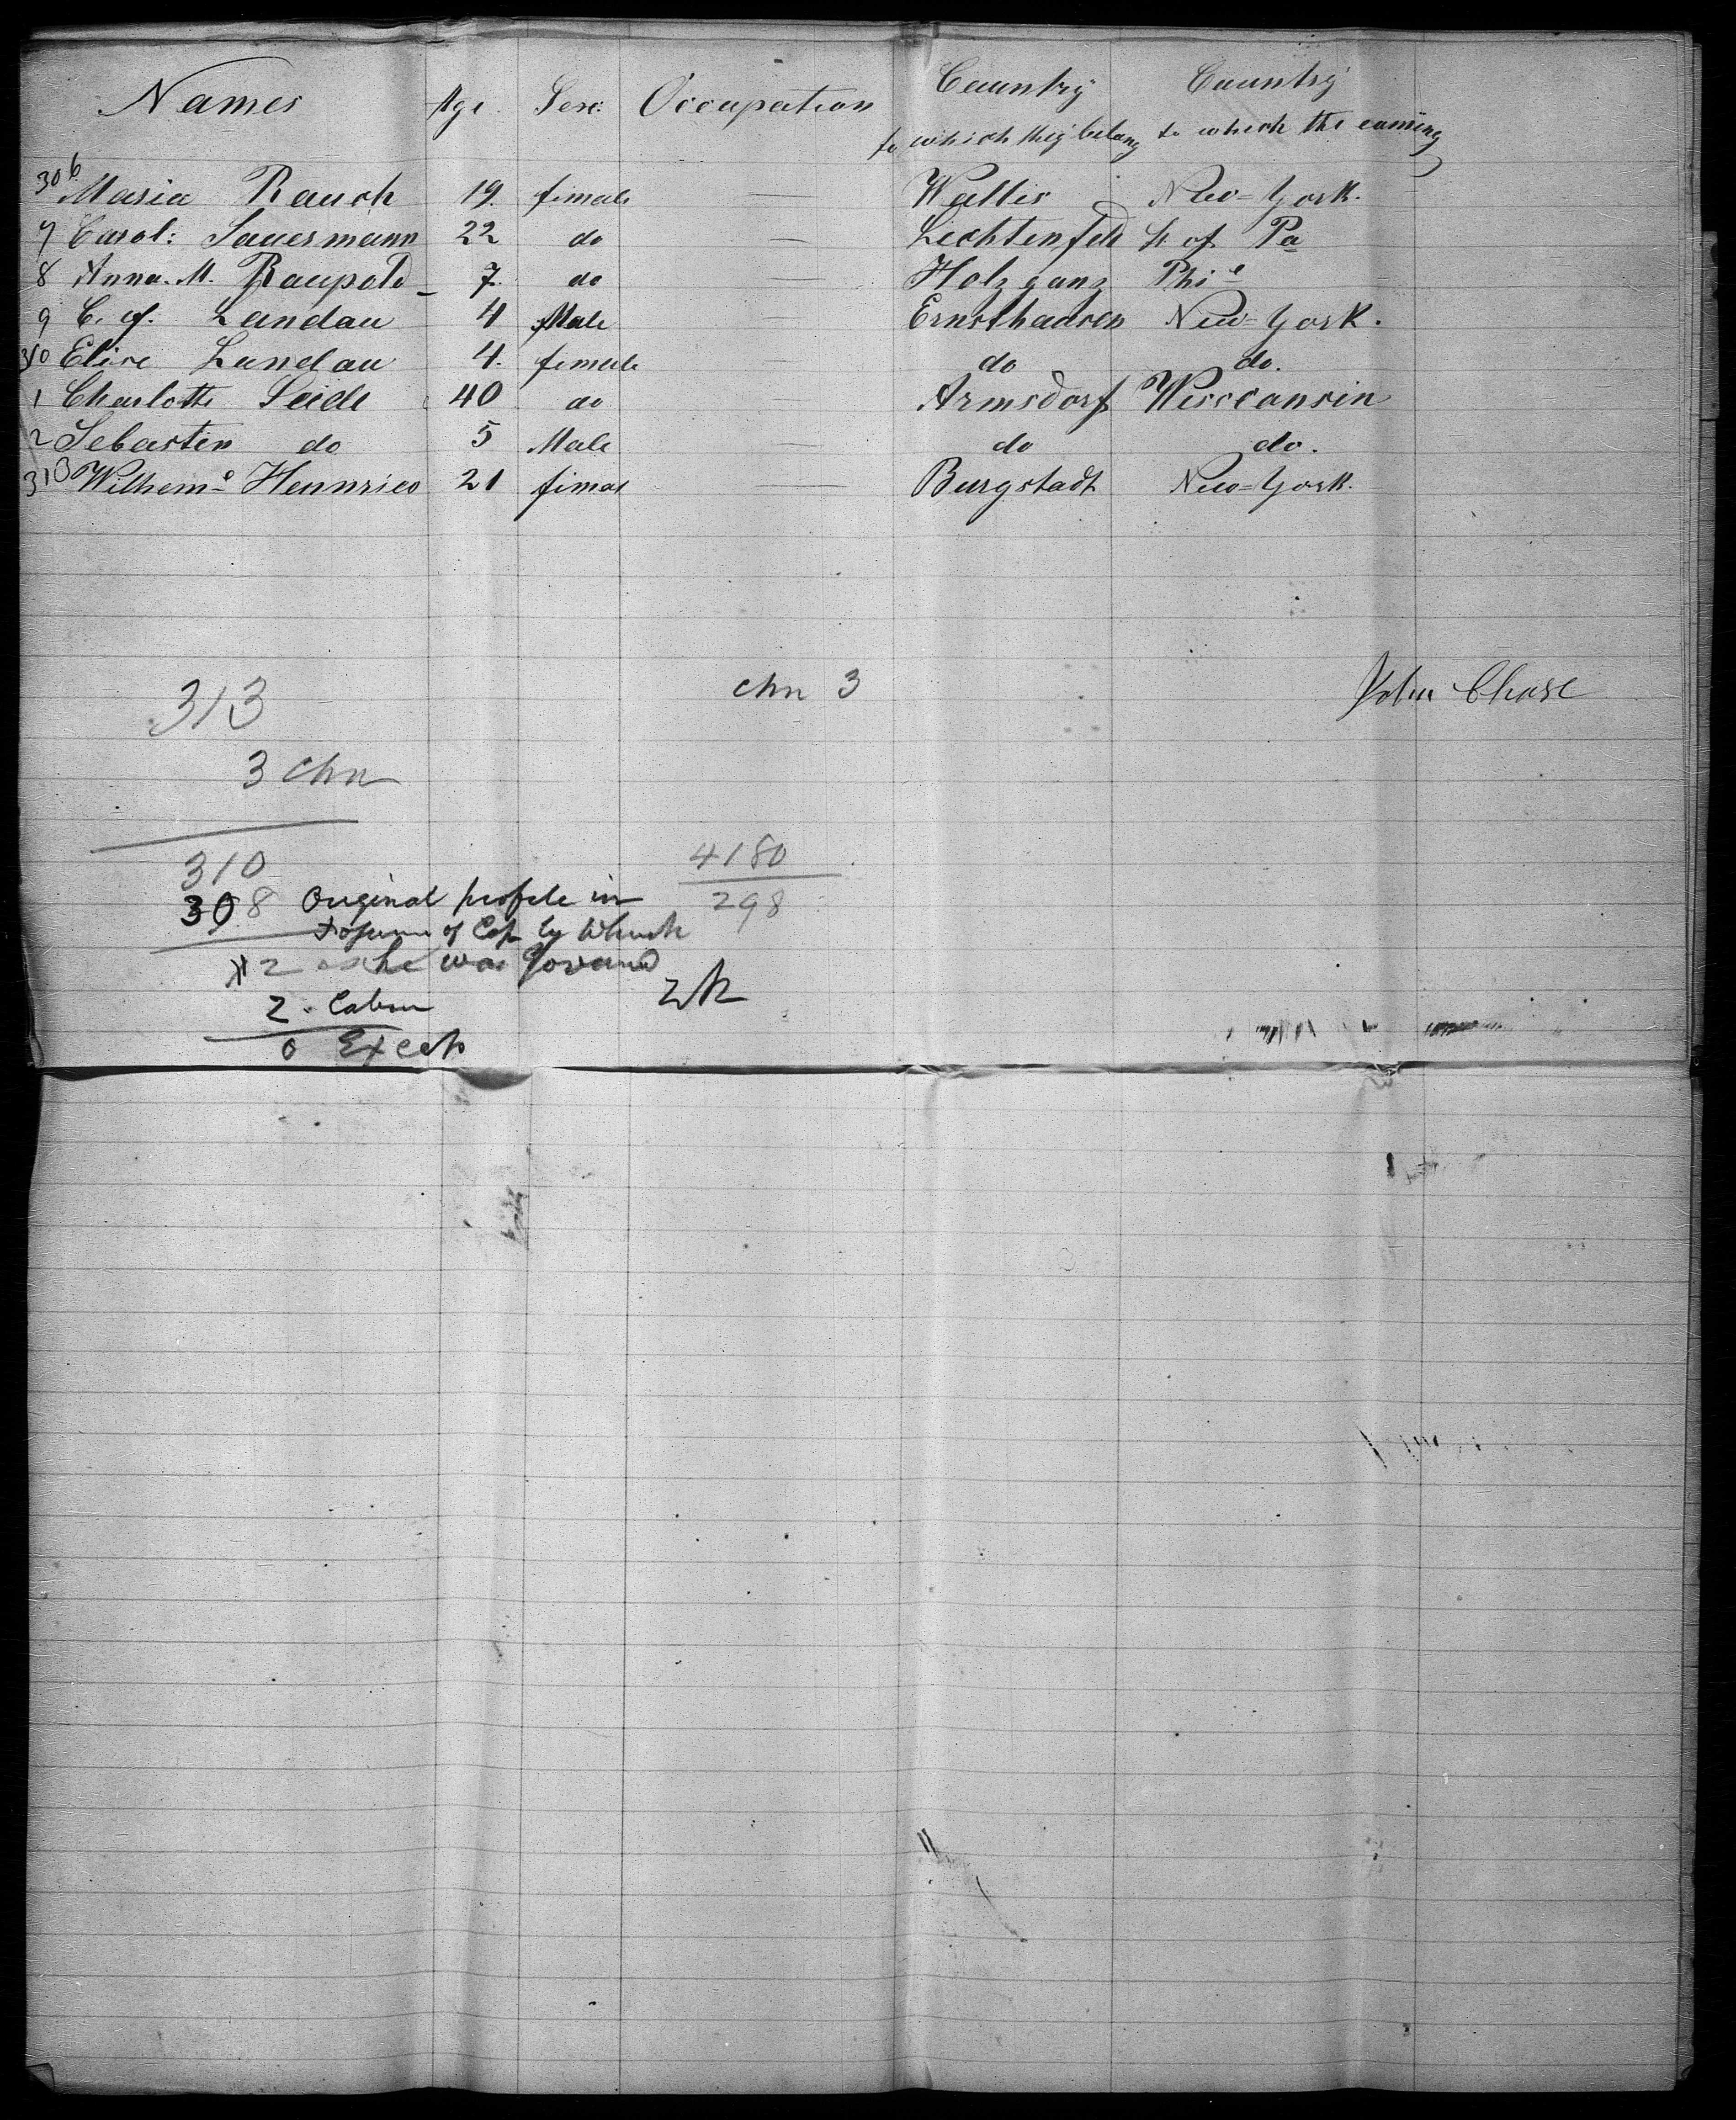 Names Age Sex: Occupation Country to which they belong Country to which the coming
306 Maria Rauch 19. female — Wallis New-York.
7 Carol: Sauermann 22 do — Lichtenfeld St of Pa
8 Anna. M. Raupold 7. do — Holzganz Phi e
9 C. g. Landau 4 Male — Ernsthausen New-York.
310 Elise Landau 4. female — do do.
1 Charlotte Seide 40 do Armsdorf Wisccansin
2 Sebastien do 5 Male — do do.
313 Wilhem e Hennrico 21 fimal — Burgstadt New-York.
313 chn 3 John Chase
3 chn
310 4180
308 Original in 298
of by
2 he was
2. Cabin
0